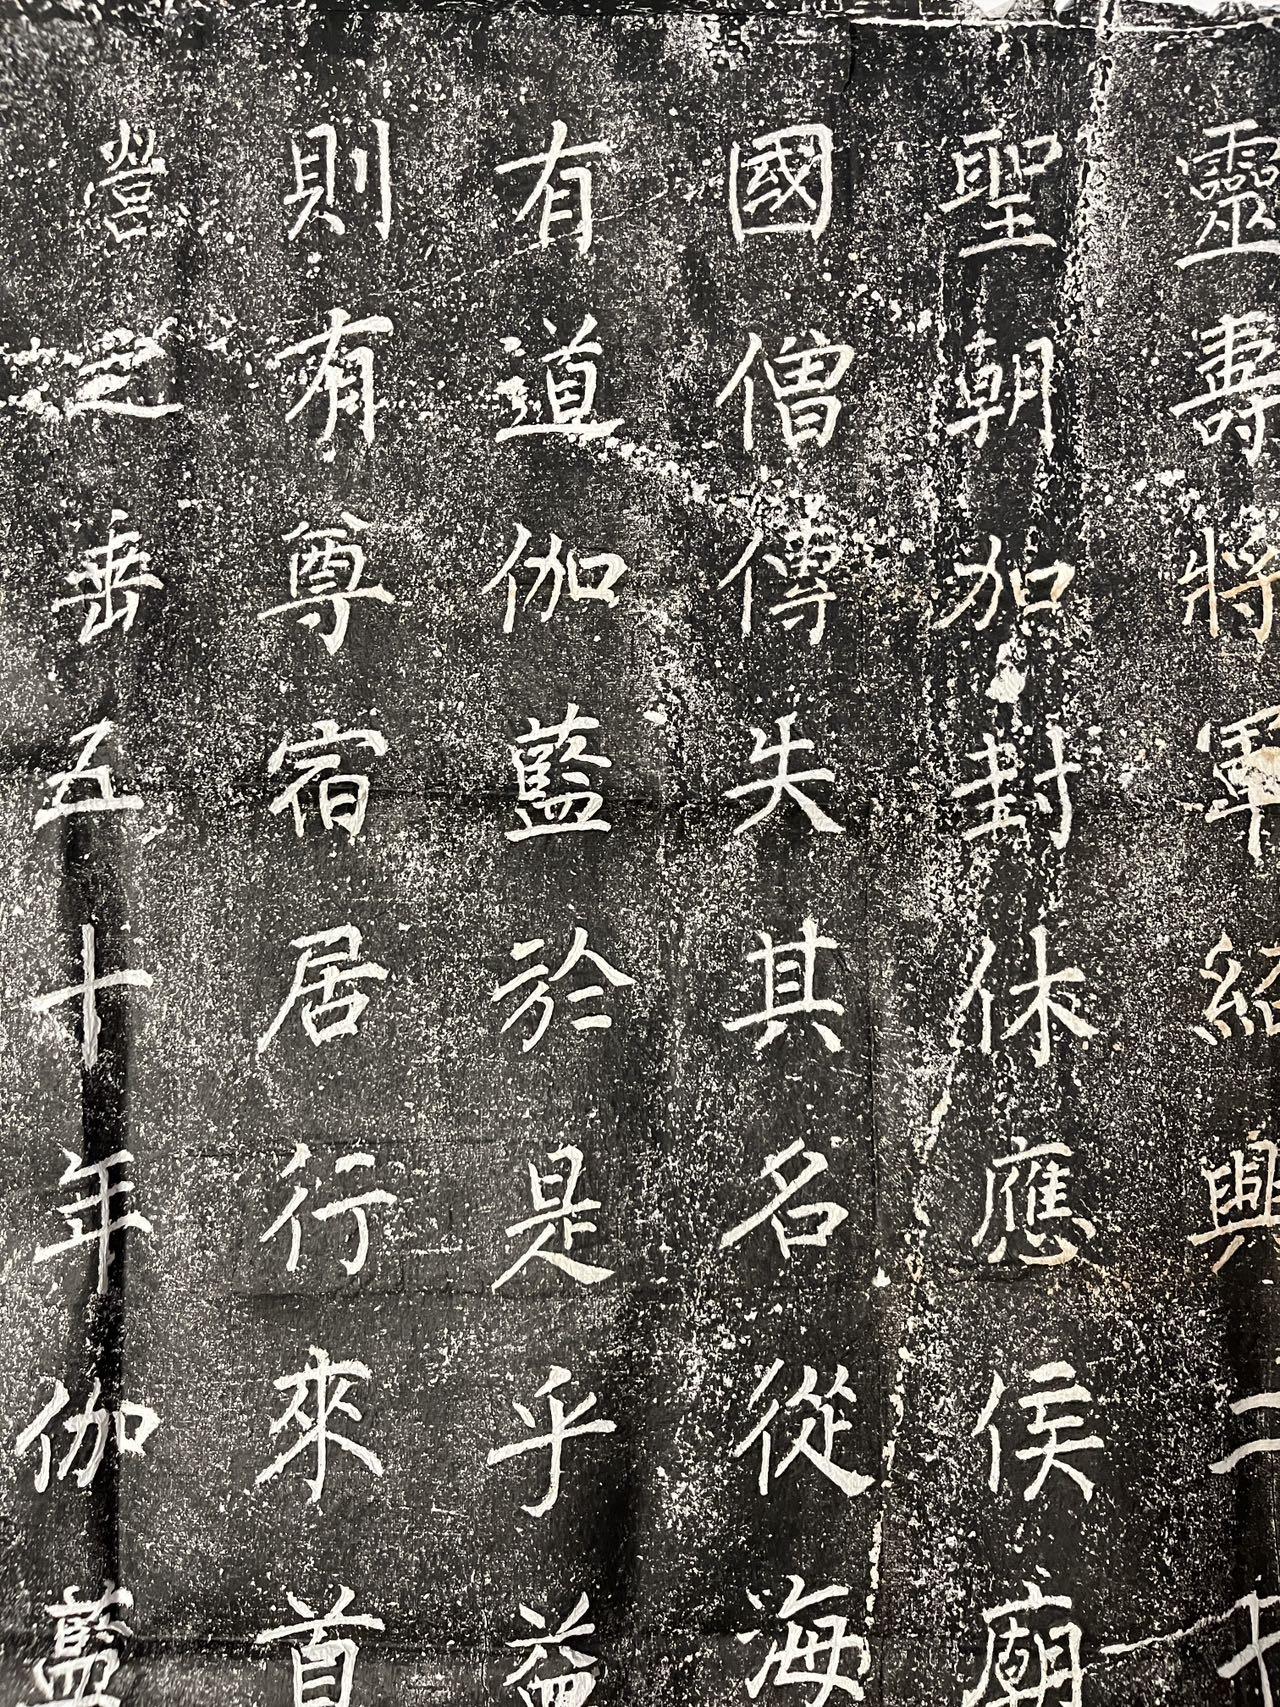 靈壽將軍紹興二十
聖朝加封休應侯廟
國僧傳失其名從海
有道伽藍於是乎益
則有尊宿居行來首
營之垂五十年伽藍